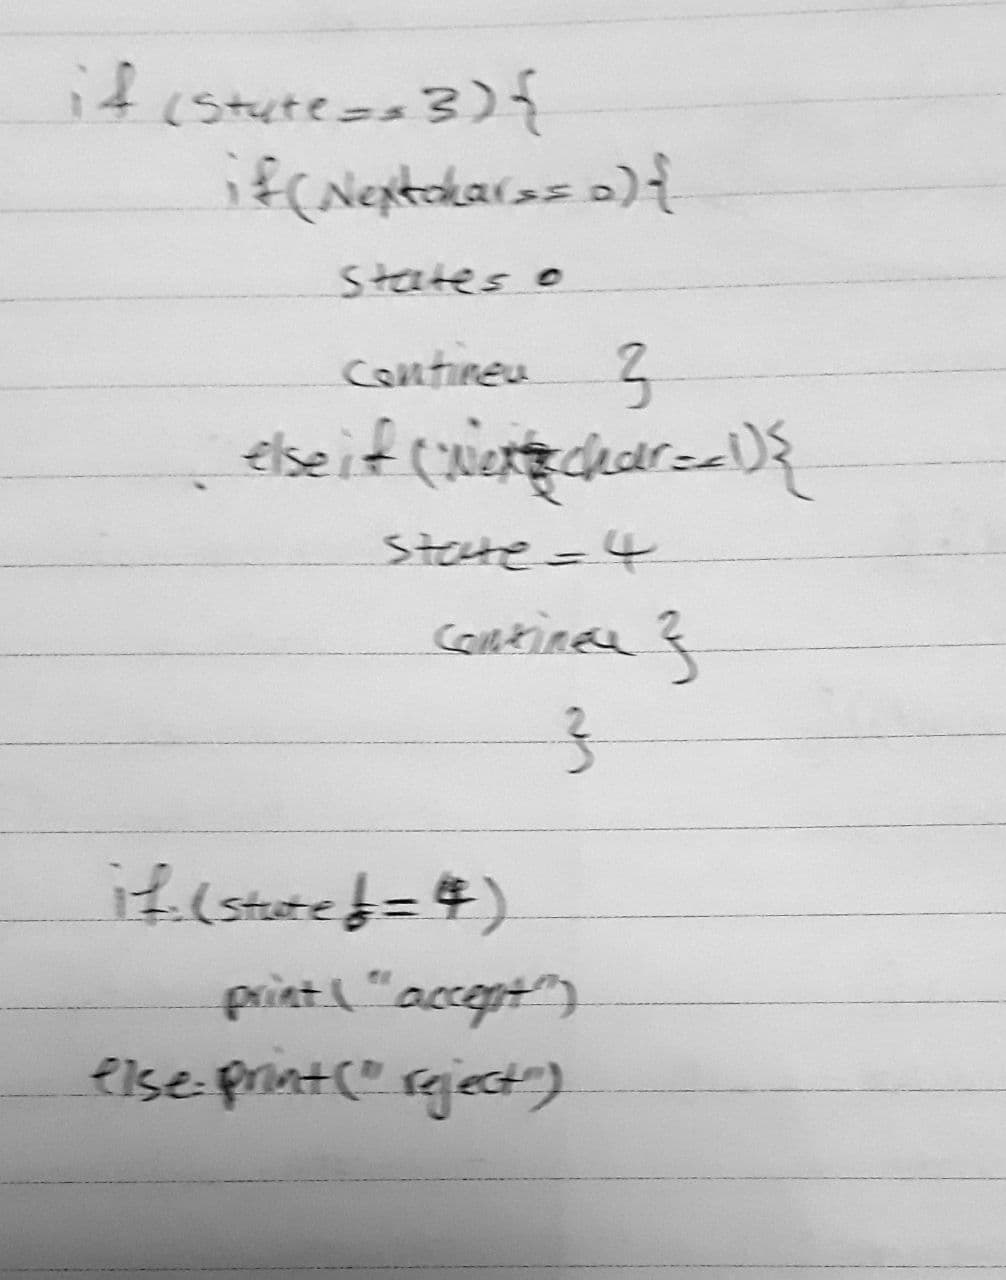 if (state == 3) {
if (Nextchar == 0) {
state = 0
contineu }
else if (Nextchar == 1) {
state = 4
contineu }
}
if (state != 4)
print ("accept")
else print (" reject")